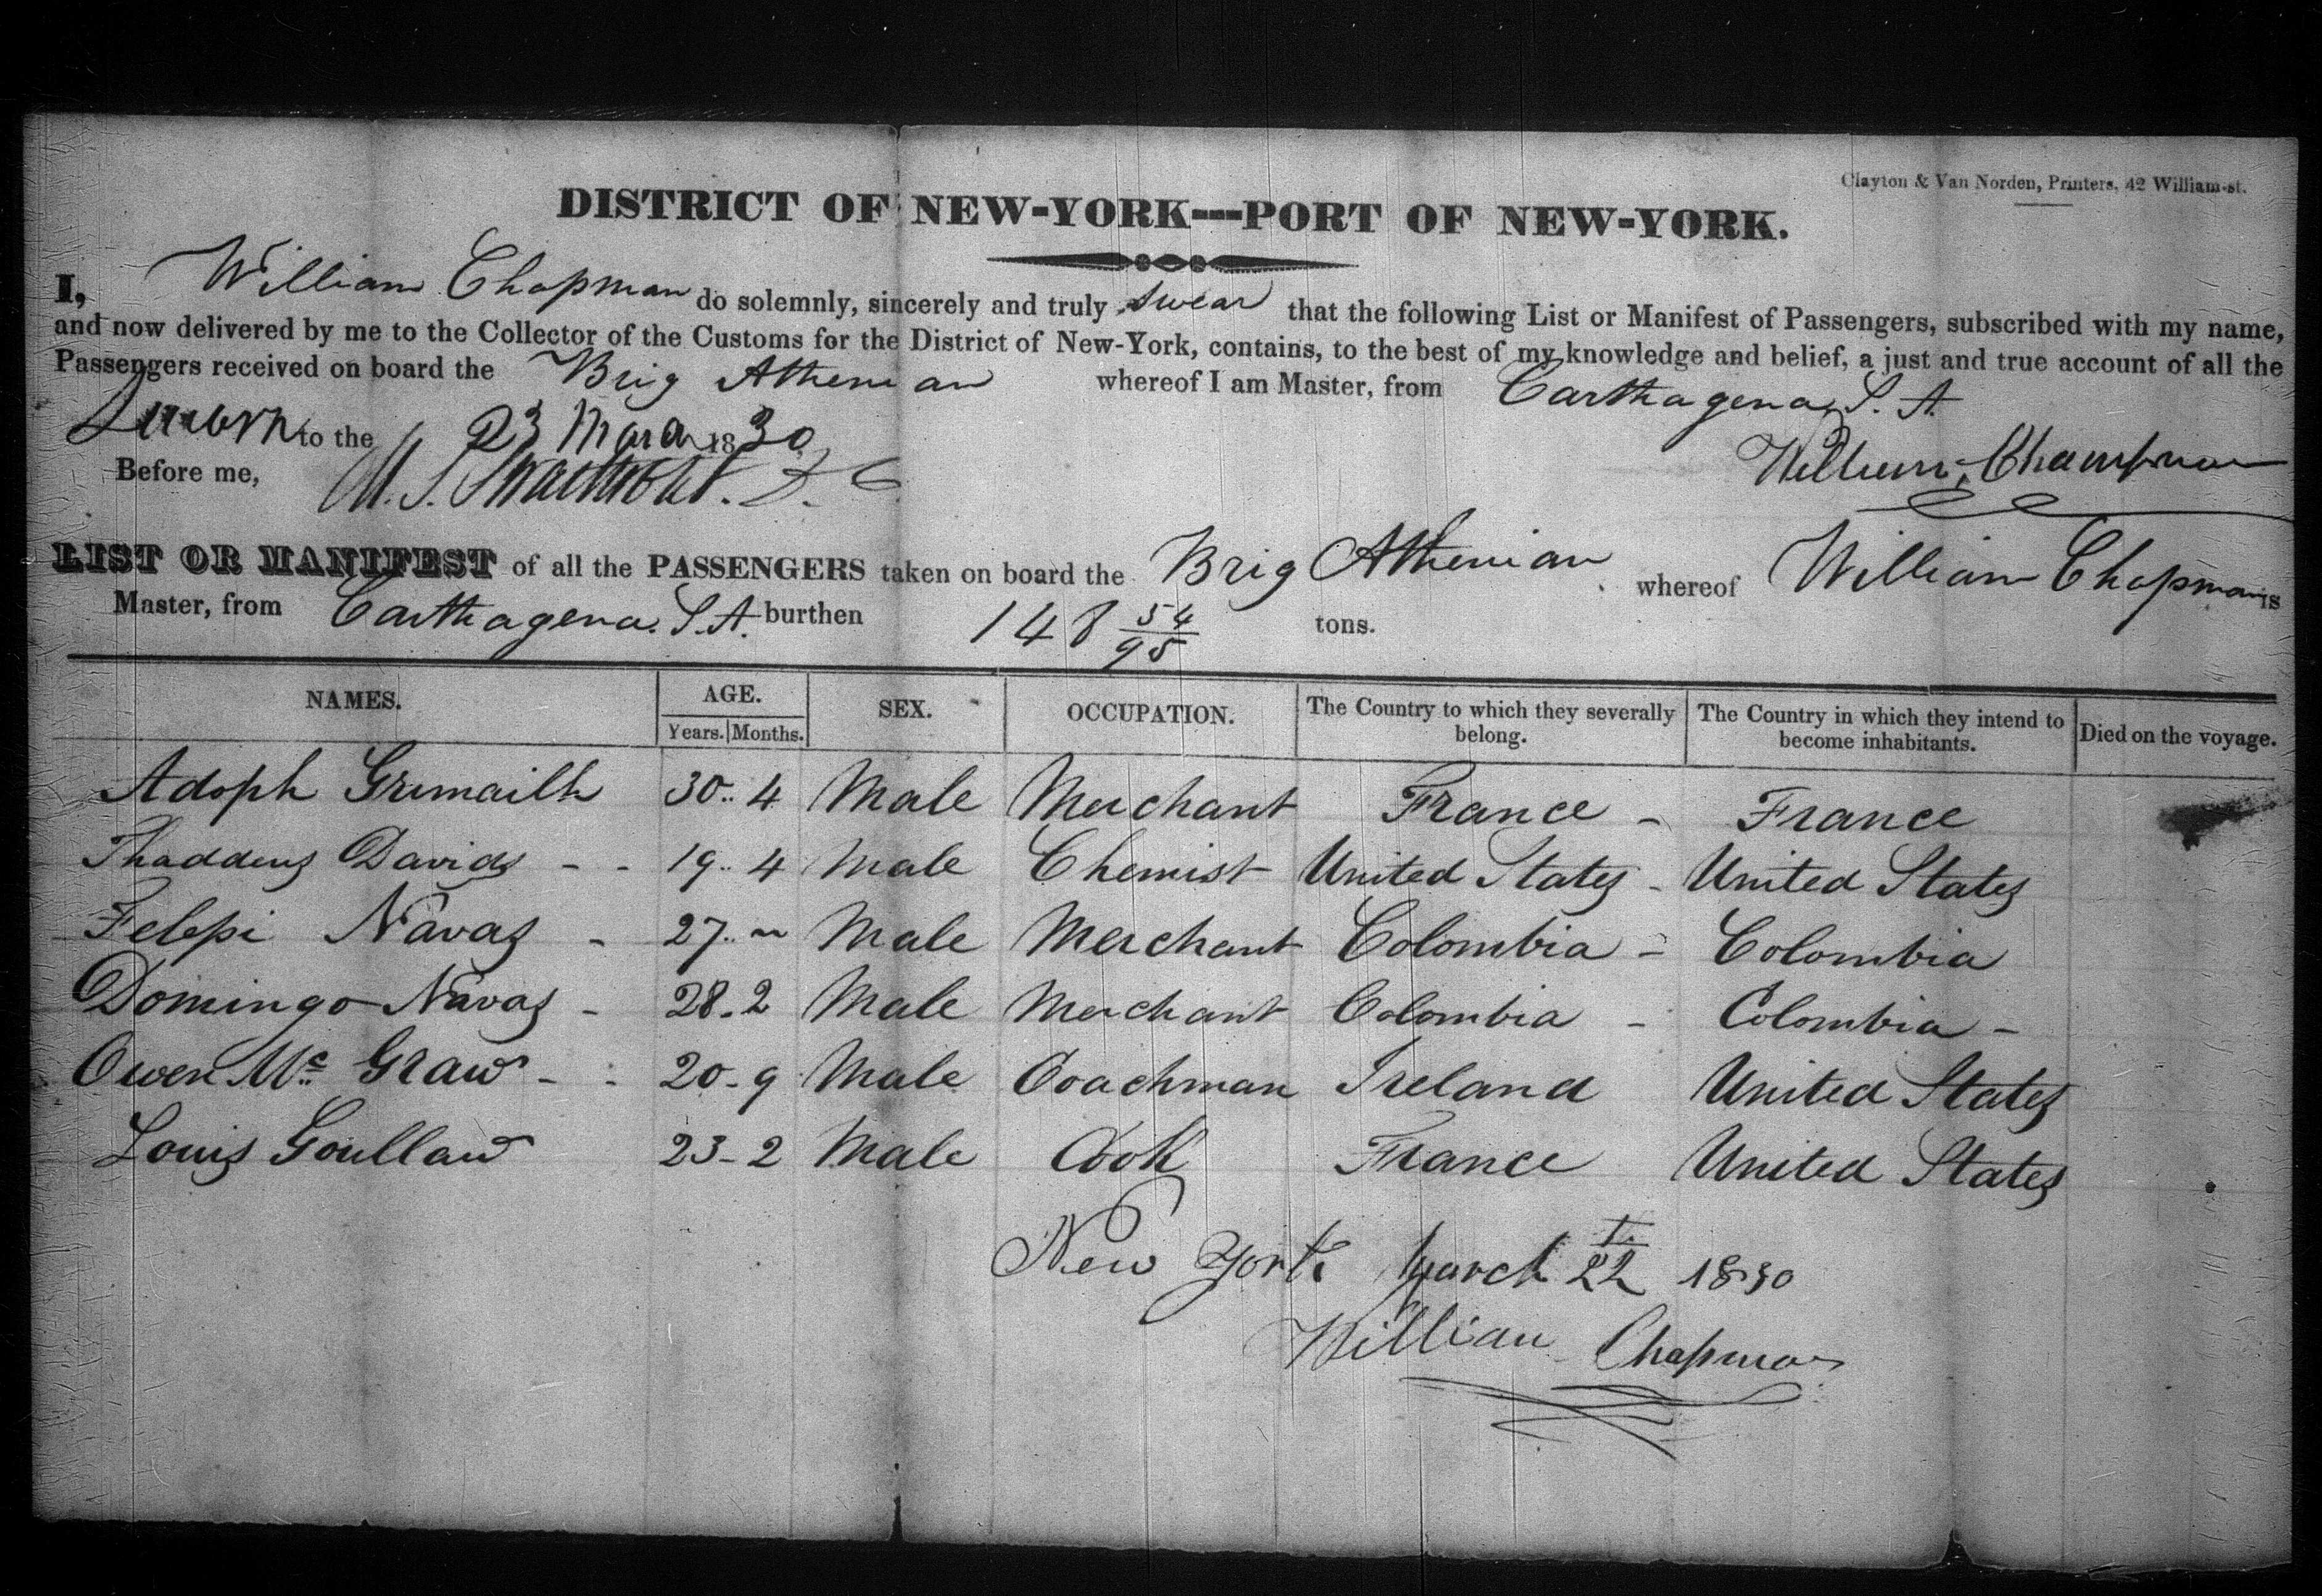 Clayton & Van Norden, Printers, 42 William-st.
DISTRICT OF NEW-YORK---PORT OF NEW-YORK.
I, William Chapman do solemnly, sincerely and truly swear that the following List or Manifest of Passengers, subscribed with my name,
and now delivered by me to the Collector of the Customs for the District of New-York, contains, to the best of my knowledge and belief, a just and true account of all the
Passengers received on board the Brig Athenian whereof I am Master, from Carthagena S. A.
Sworn to the 23 March 1830
William Chapman
Before me, M. S. Swartwout. D. C
LIST OR MANIFEST of all the PASSENGERS taken on board the Brig Athenian whereof William Chapman is
Master, from Carthagena. S.A. burthen 148 54/95 tons.
NAMES. AGE. SEX. OCCUPATION. The Country to which they severally belong. The Country in which they intend to become inhabitants. Died on the voyage.
Years. Months.
Adoph Grimailh 30.. 4 Male Merchant France - France
Thaddeus Davids - - 19.. 4 Male Chemist United States - United States
Felepi Navas - 27.. ~ Male Merchant Colombia - Colombia
Domingo Navas - 28-2 Male Merchant Colombia - Colombia -
Owen Mc Graw - - 20-9 Male Coachman Ireland United States
Louis Goullaw 23-2 Male Cook France United States
New York March 22 1830
William Chapman